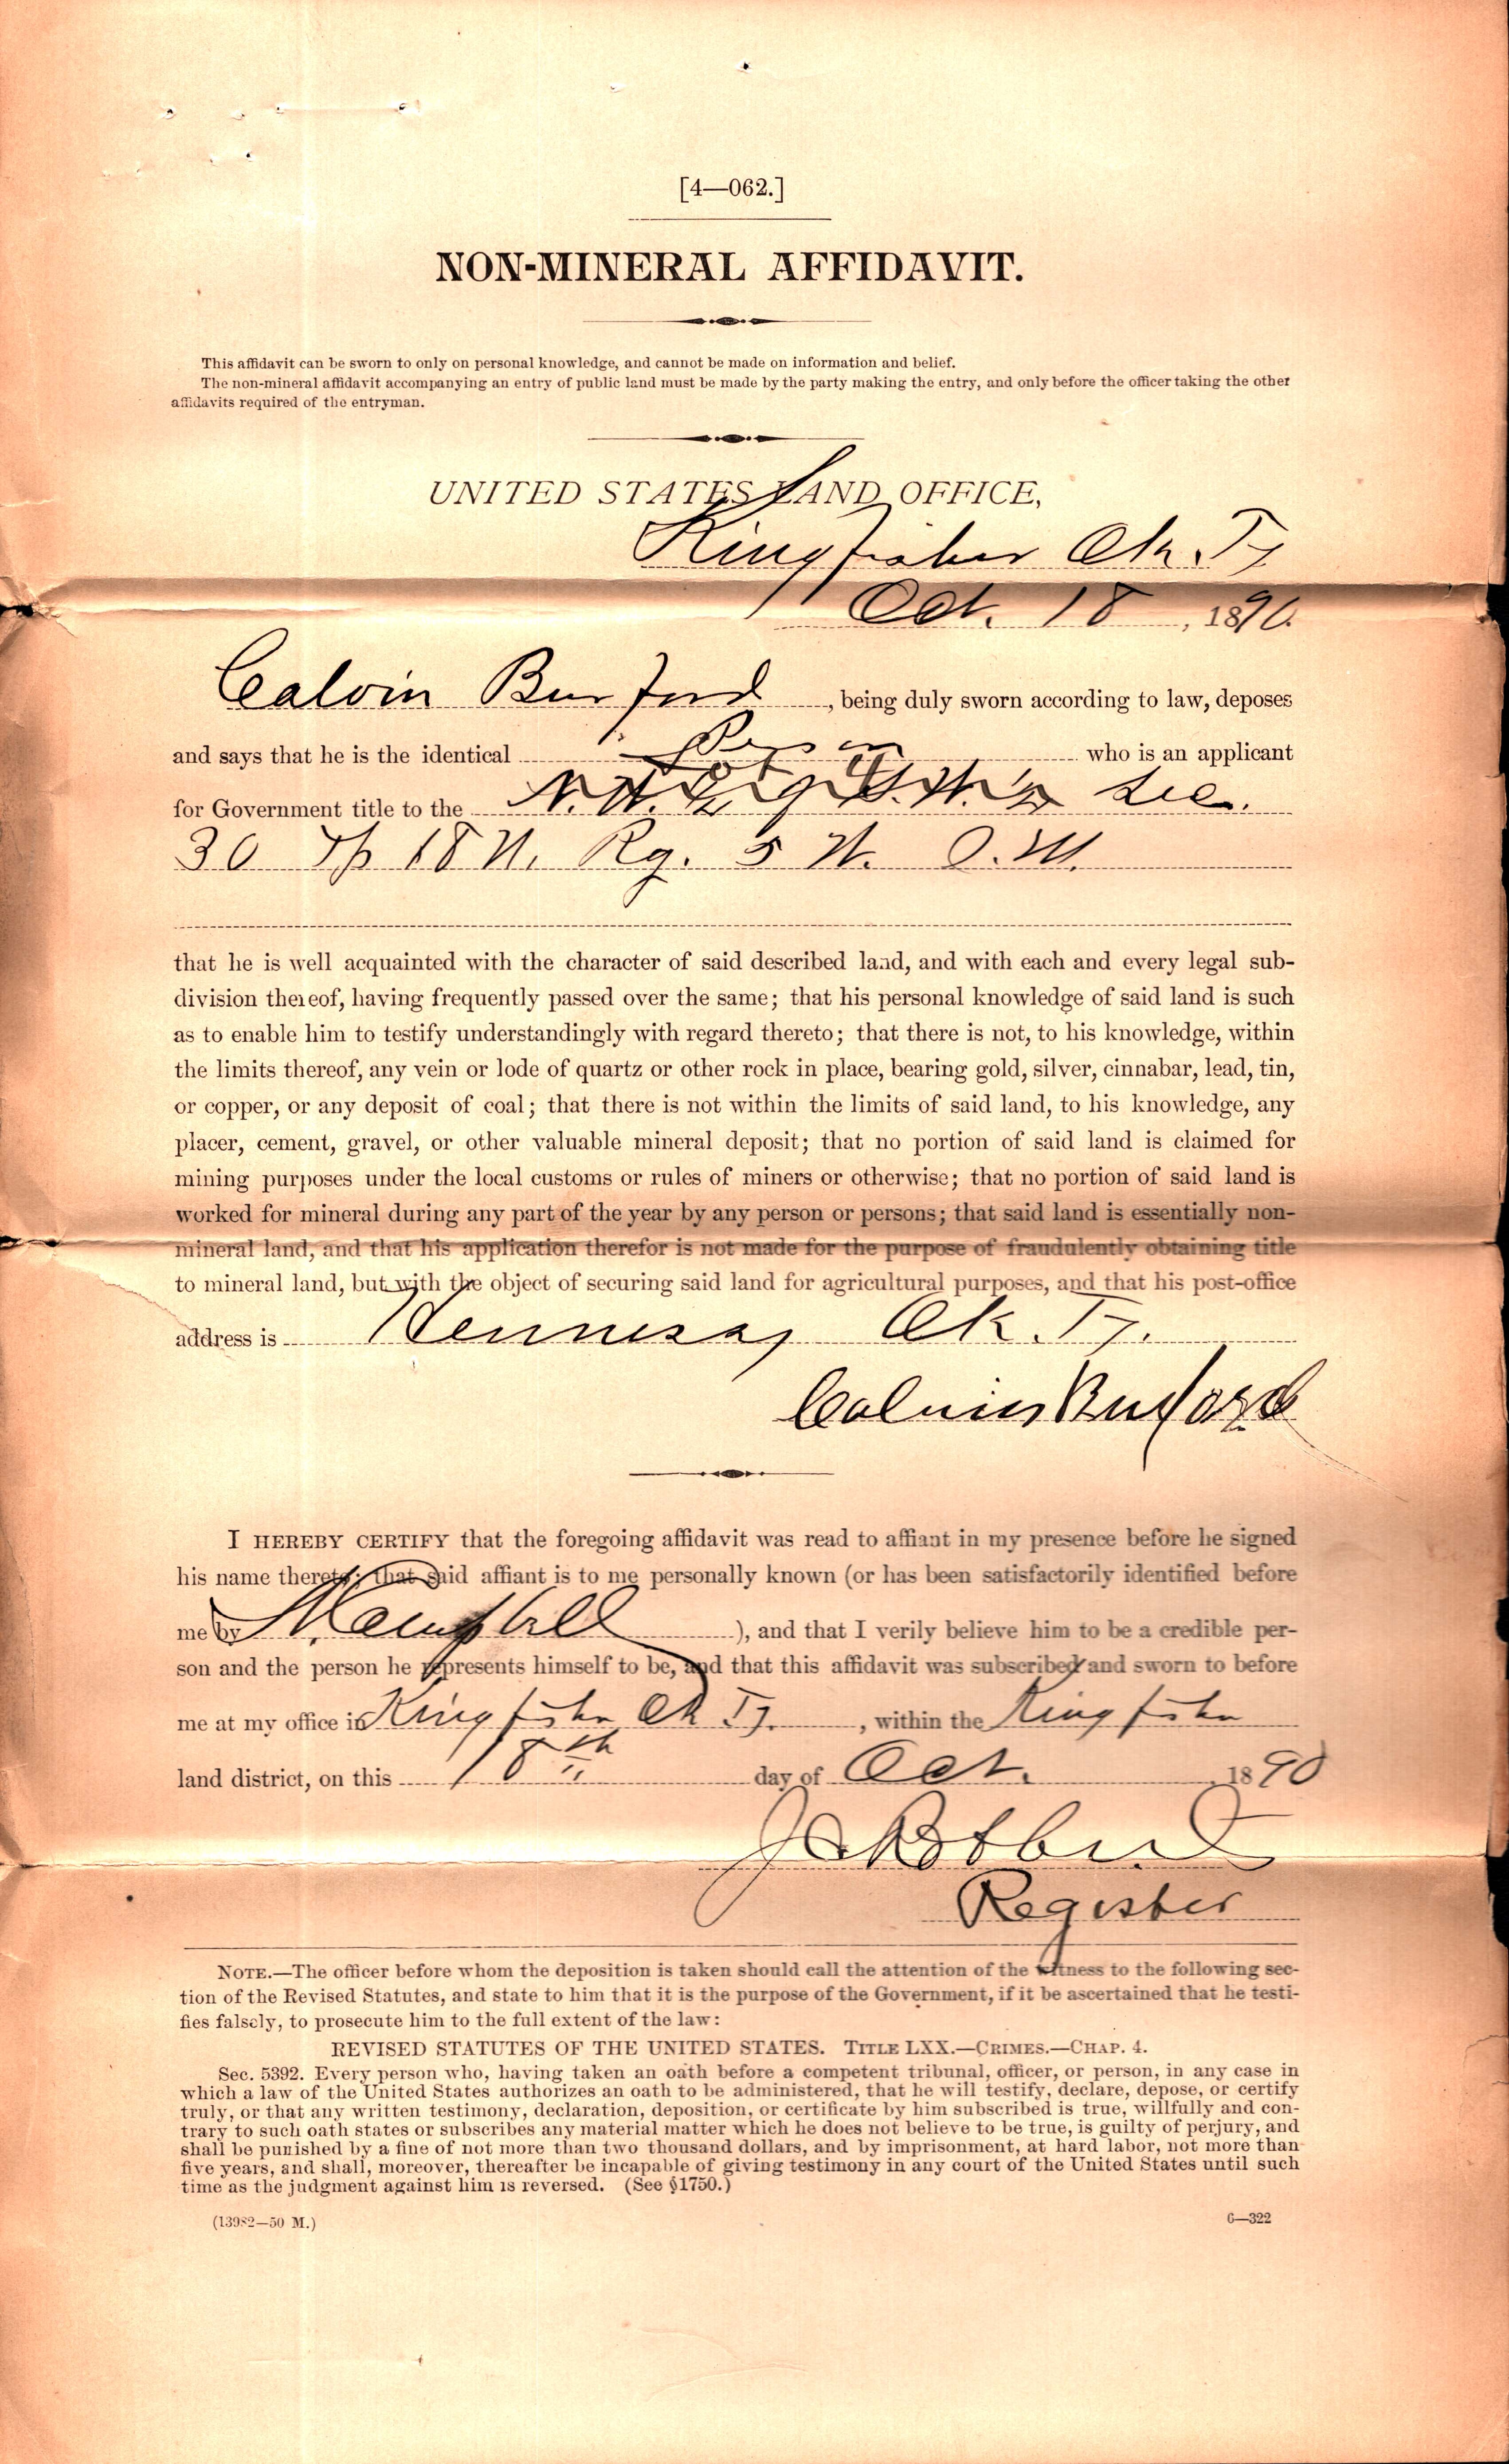 [4—062.]
NON-MINERAL AFFIDAVIT.
This affidavit can be sworn to only on personal knowledge, and cannot be made on information and belief.
The non-mineral affidavit accompanying an entry of public land must be made by the party making the entry, and only before the officer taking the other
affidavits required of the entryman.
UNITED STATES LAND OFFICE,
Kingfisher Ok. Ty
Oct. 18, 1890.
Calvin Burford, being duly sworn according to law, deposes
and says that he is the identical Person who is an applicant
for Government title to the Sec.
30 Tp 18 N. Rg. 5 W. I.M.
that he is well acquainted with the character of said described land, and with each and every legal sub-
division thereof, having frequently passed over the same; that his personal knowledge of said land is such
as to enable him to testify understandingly with regard thereto; that there is not, to his knowledge, within
the limits thereof, any vein or lode of quartz or other rock in place, bearing gold, silver, cinnabar, lead, tin,
or copper, or any deposit of coal; that there is not within the limits of said land, to his knowledge, any
placer, cement, gravel, or other valuable mineral deposit; that no portion of said land is claimed for
mining purposes under the local customs or rules of miners or otherwise; that no portion of said land is
worked for mineral during any part of the year by any person or persons; that said land is essentially non-
mineral land, and that his application therefor is not made for the purpose of fraudulently obtaining title
to mineral land, but with the object of securing said land for agricultural purposes, and that his post-office
address is Hennessy Ok. Ty.
Calvin Burford
I HEREBY CERTIFY that the foregoing affidavit was read to affiant in my presence before he signed
his name thereto; that said affiant is to me personally known (or has been satisfactorily identified before
me by Campbell), and that I verily believe him to be a credible per-
son and the person he represents himself to be, and that this affidavit was subscribed and sworn to before
me at my office in Kingfisher Ok Ty., within the Kingfisher
land district, on this 18th day of Oct. 1890
Register
NOTE.—The officer before whom the deposition is taken should call the attention of the witness to the following sec-
tion of the Revised Statutes, and state to him that it is the purpose of the Government, if it be ascertained that he testi-
fies falsely, to prosecute him to the full extent of the law:
REVISED STATUTES OF THE UNITED STATES. TITLE LXX.—CRIMES.—CHAP. 4.
Sec. 5392. Every person who, having taken an oath before a competent tribunal, officer, or person, in any case in
which a law of the United States authorizes an oath to be administered, that he will testify, declare, depose, or certify
truly, or that any written testimony, declaration, deposition, or certificate by him subscribed is true, willfully and con-
trary to such oath states or subscribes any material matter which he does not believe to be true, is guilty of perjury, and
shall be punished by a fine of not more than two thousand dollars, and by imprisonment, at hard labor, not more than
five years, and shall, moreover, thereafter be incapable of giving testimony in any court of the United States until such
time as the judgment against him is reversed. (See §1750.)
(13982—50 M.)
6—322